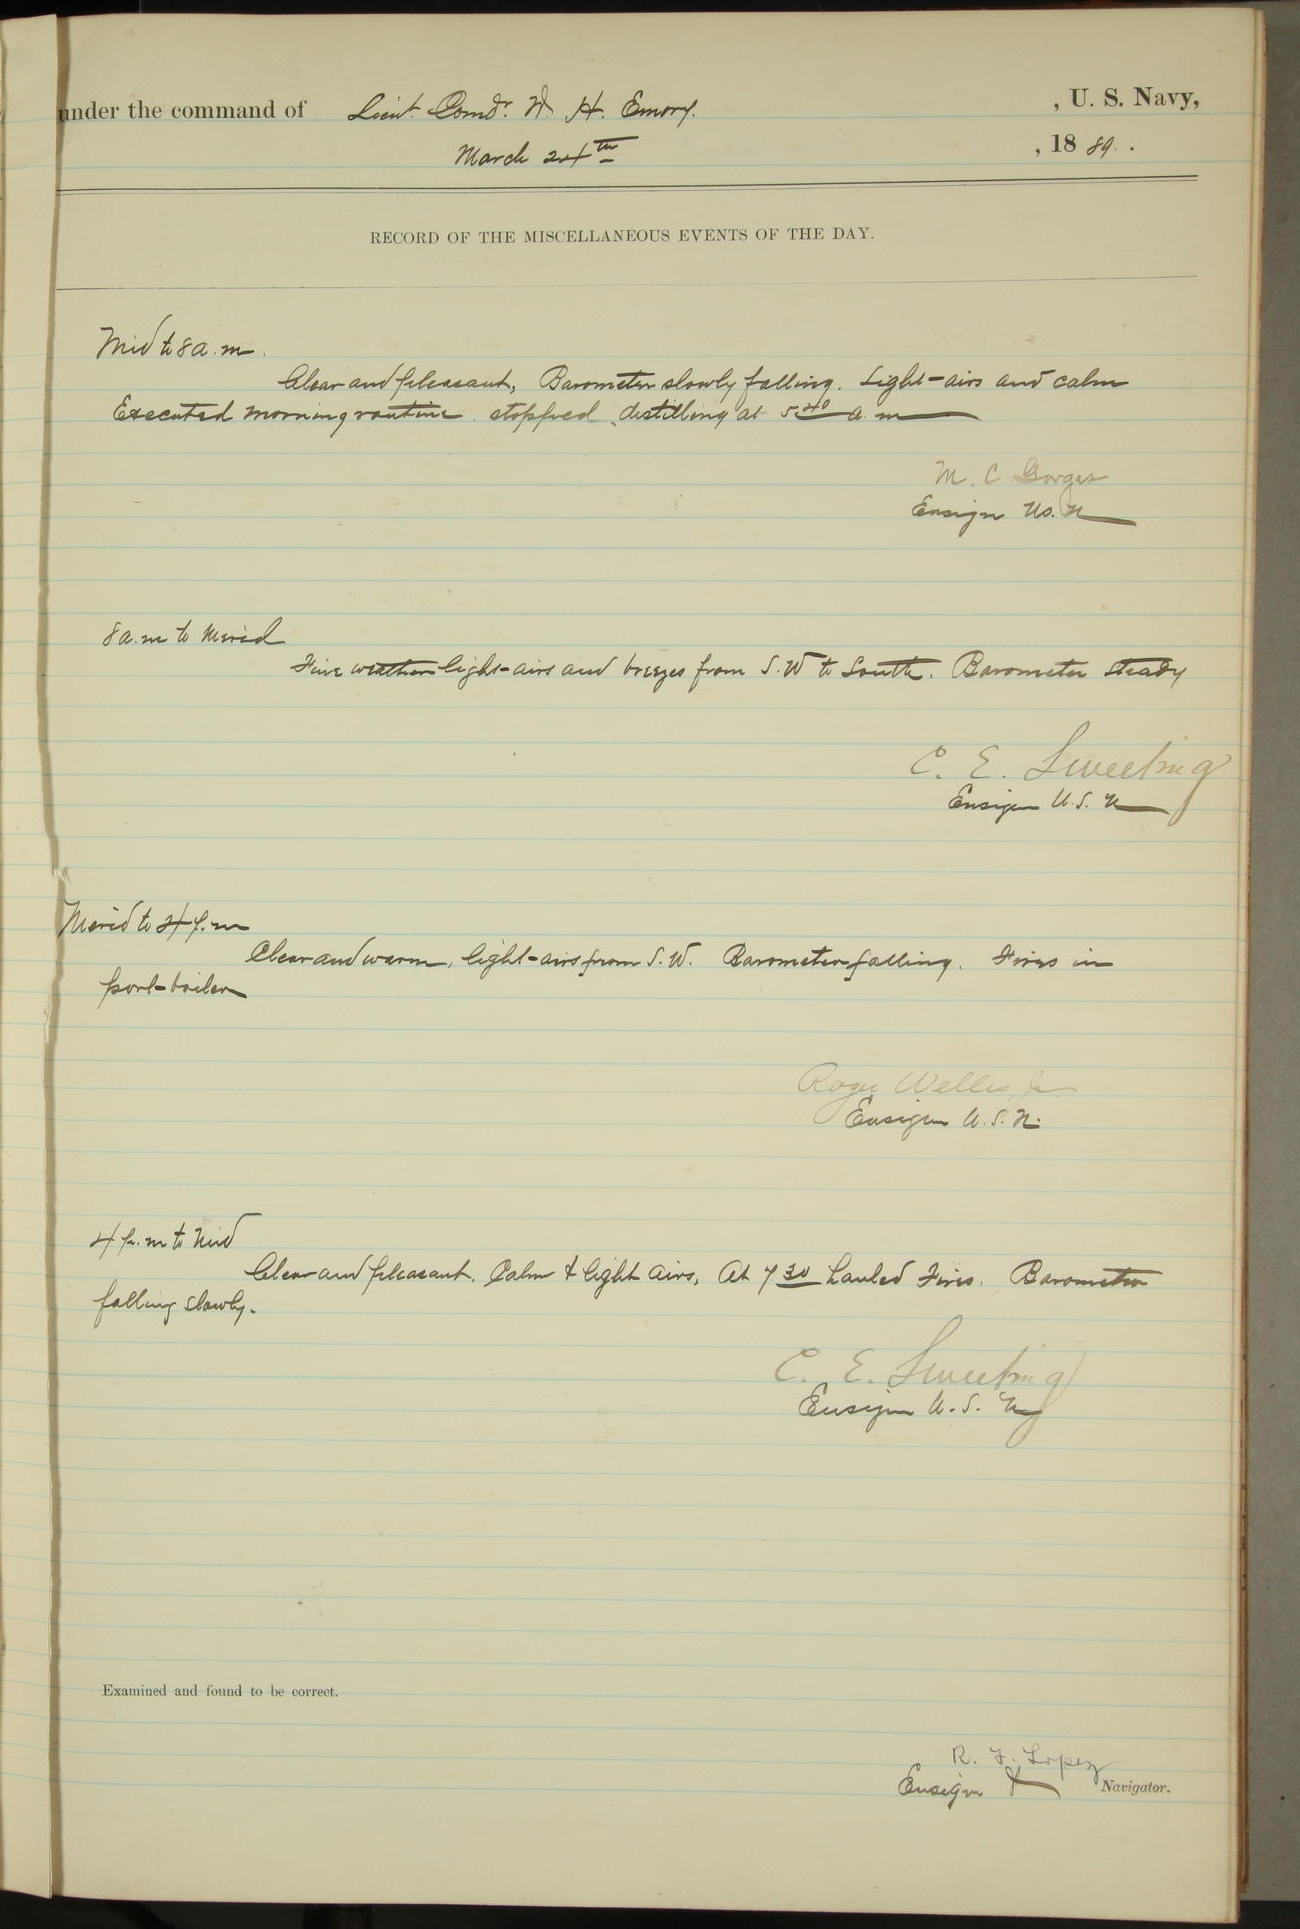 under the command of Lieut. Comdr. W. H. Emory. , U. S. Navy,
March 24th , 1889.
RECORD OF THE MISCELLANEOUS EVENTS OF THE DAY.
Mid to 8 a.m.
Clear and pleasant, Barometer slowly falling. Light airs and calm
Executed morning routine. stopped distilling at 5.40 a.m
M. C. Gorgas
Ensign U.S.N
8 a.m to Merid
Fine weather light airs and breezes from S.W to South. Barometer steady
C. E. Sweeting
Ensign U.S.N
Merid to 4 p.m
Clear and warm, light airs from S.W. Barometer falling. Fires in
port boiler
Roger Welles Jr.
Ensign U.S.N.
4 p.m to Mid
Clear and pleasant. Calm & light airs, At 7 30 hauled Fires. Barometer
falling slowly.
C. E. Sweeting
Ensign U.S.N
Examined and found to be correct.
R. F. Lopez
Ensign & Navigator.